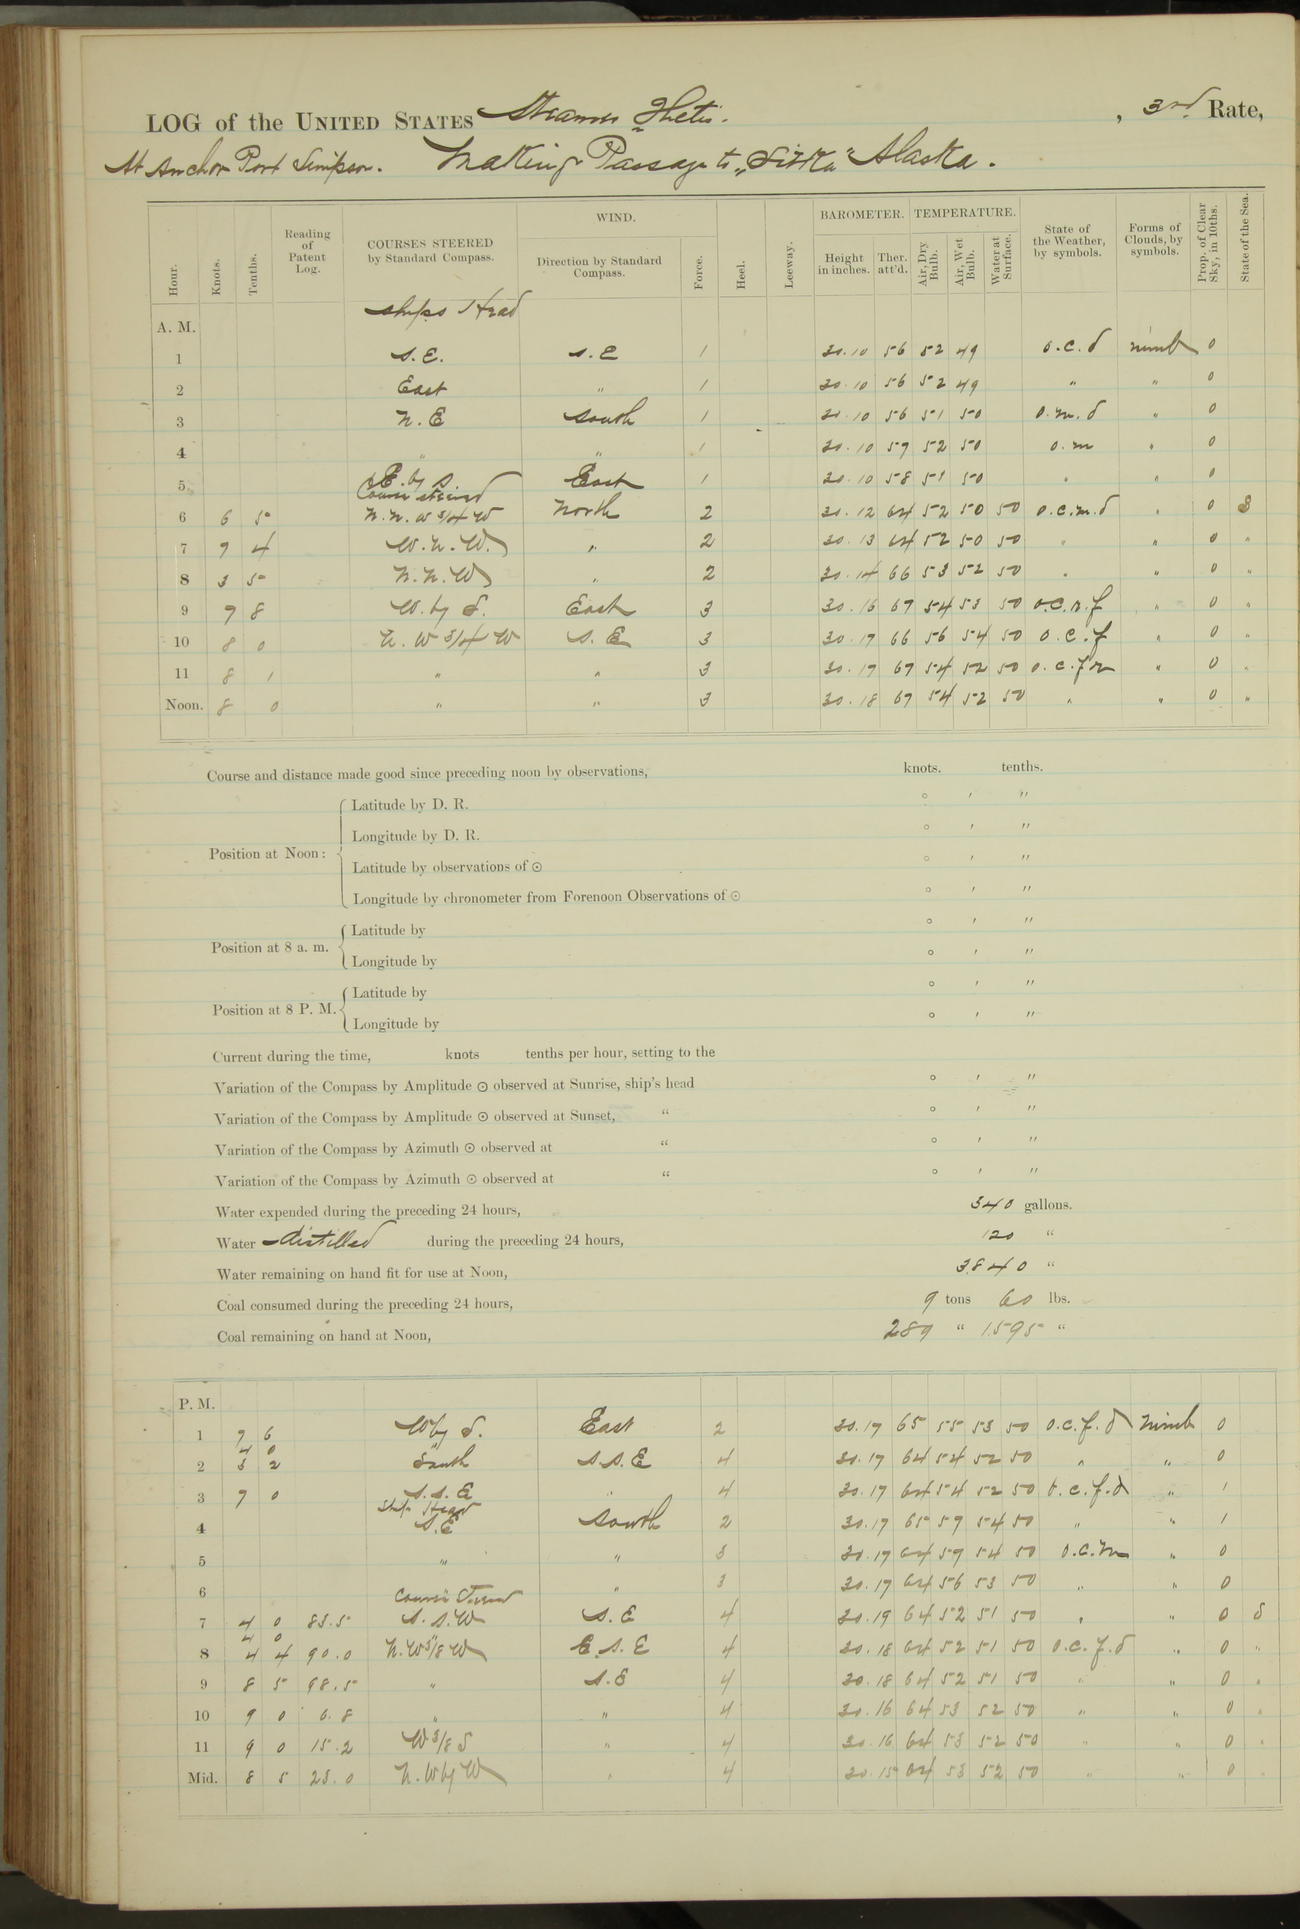 LOG of the UNITED STATES Steamer Thetis. , 3rd Rate,
At Anchor Port Simpson. Making Passage to "Sitka" Alaska.
Hour. Knots. Tenths. Reading of Patent Log. COURSES STEERED by Standard Compass. WIND. Direction by Standard Compass. Force. Heel. Leeway. BAROMETER. Height in inches. Ther. att'd. TEMPERATURE. Air, Dry Bulb. Air, Wet Bulb. Water at Surface. State of the Weather, by symbols. Forms of Clouds, by symbols. Prop. of Clear Sky, in 10ths. State of the Sea.
Ships Head
A. M.
1 S.E. S.E 1 30.10 56 52 49 o.c.d nimb 0
2 East " 1 30.10 56 52 49 " " 0
3 N.E South 1 30.10 56 51 50 o.m.d " 0
4 " " 1 30.10 59 52 50 o.m " 0
5 E. by S. East 1 30.10 58 51 50 " " 0
Course steered
6 6 5 N.N.W 3/4 W North 2 30.12 64 52 50 50 o.c.m.d " 0 S
7 9 4 W.N.W. " 2 30.13 64 52 50 50 " " 0 "
8 3 5 N.N.W " 2 30.14 66 53 52 50 " " 0 "
9 7 8 W. by S. East 3 30.16 67 54 53 50 o.c.r.f " 0 "
10 8 0 N.W 3/4 W S.E 3 30.17 66 56 54 50 o.c.f " 0 "
11 8 1 " " 3 30.17 67 54 52 50 o.c.f.r " 0 "
Noon. 8 0 " " 3 30.18 67 54 52 50 " " 0 "
Course and distance made good since preceding noon by observations, knots. tenths.
Position at Noon:
Latitude by D. R. ° ′ ″
Longitude by D. R. ° ′ ″
Latitude by observations of ☉ ° ′ ″
Longitude by chronometer from Forenoon Observations of ☉ ° ′ ″
Position at 8 a. m.
Latitude by ° ′ ″
Longitude by ° ′ ″
Position at 8 P. M.
Latitude by ° ′ ″
Longitude by ° ′ ″
Current during the time, knots tenths per hour, setting to the
Variation of the Compass by Amplitude ☉ observed at Sunrise, ship's head ° ′ ″
Variation of the Compass by Amplitude ☉ observed at Sunset, " ° ′ ″
Variation of the Compass by Azimuth ☉ observed at " ° ′ ″
Variation of the Compass by Azimuth ☉ observed at " ° ′ ″
Water expended during the preceding 24 hours, 340 gallons.
Water distilled during the preceding 24 hours, 120 "
Water remaining on hand fit for use at Noon, 3840 "
Coal consumed during the preceding 24 hours, 9 tons 60 lbs.
Coal remaining on hand at Noon, 289 " 1595 "
P. M.
1 7 6 W by S. East 2 30.17 65 55 53 50 o.c.f.d Nimb 0
4 0
2 3 2 South S.S.E 4 30.17 64 54 52 50 " " 0
3 7 0 S.S.E " 4 30.17 64 54 52 50 b.c.f.d " 1
Ships Head
4 S.E South 2 30.17 65 57 54 50 " " 1
5 " " 3 30.17 64 57 54 50 o.c.m " 0
6 " 3 30.17 64 56 53 50 " " 0
Course Steered
7 4 0 83.5 S.S.W S.E 4 30.19 64 52 51 50 " " 0 S
4 0
8 4 4 90.0 N.W 5/8 W E.S.E 4 30.18 64 52 51 50 o.c.f.d " 0 "
9 8 5 98.5 " S.E 4 30.18 64 52 51 50 " " 0 "
10 9 0 6.8 " " 4 30.16 64 53 52 50 " " 0 "
11 9 0 15.2 W 3/8 S " 4 30.16 64 53 52 50 " " 0 "
Mid. 8 5 23.0 N.W by W " 4 30.15 64 53 52 50 " " 0 "